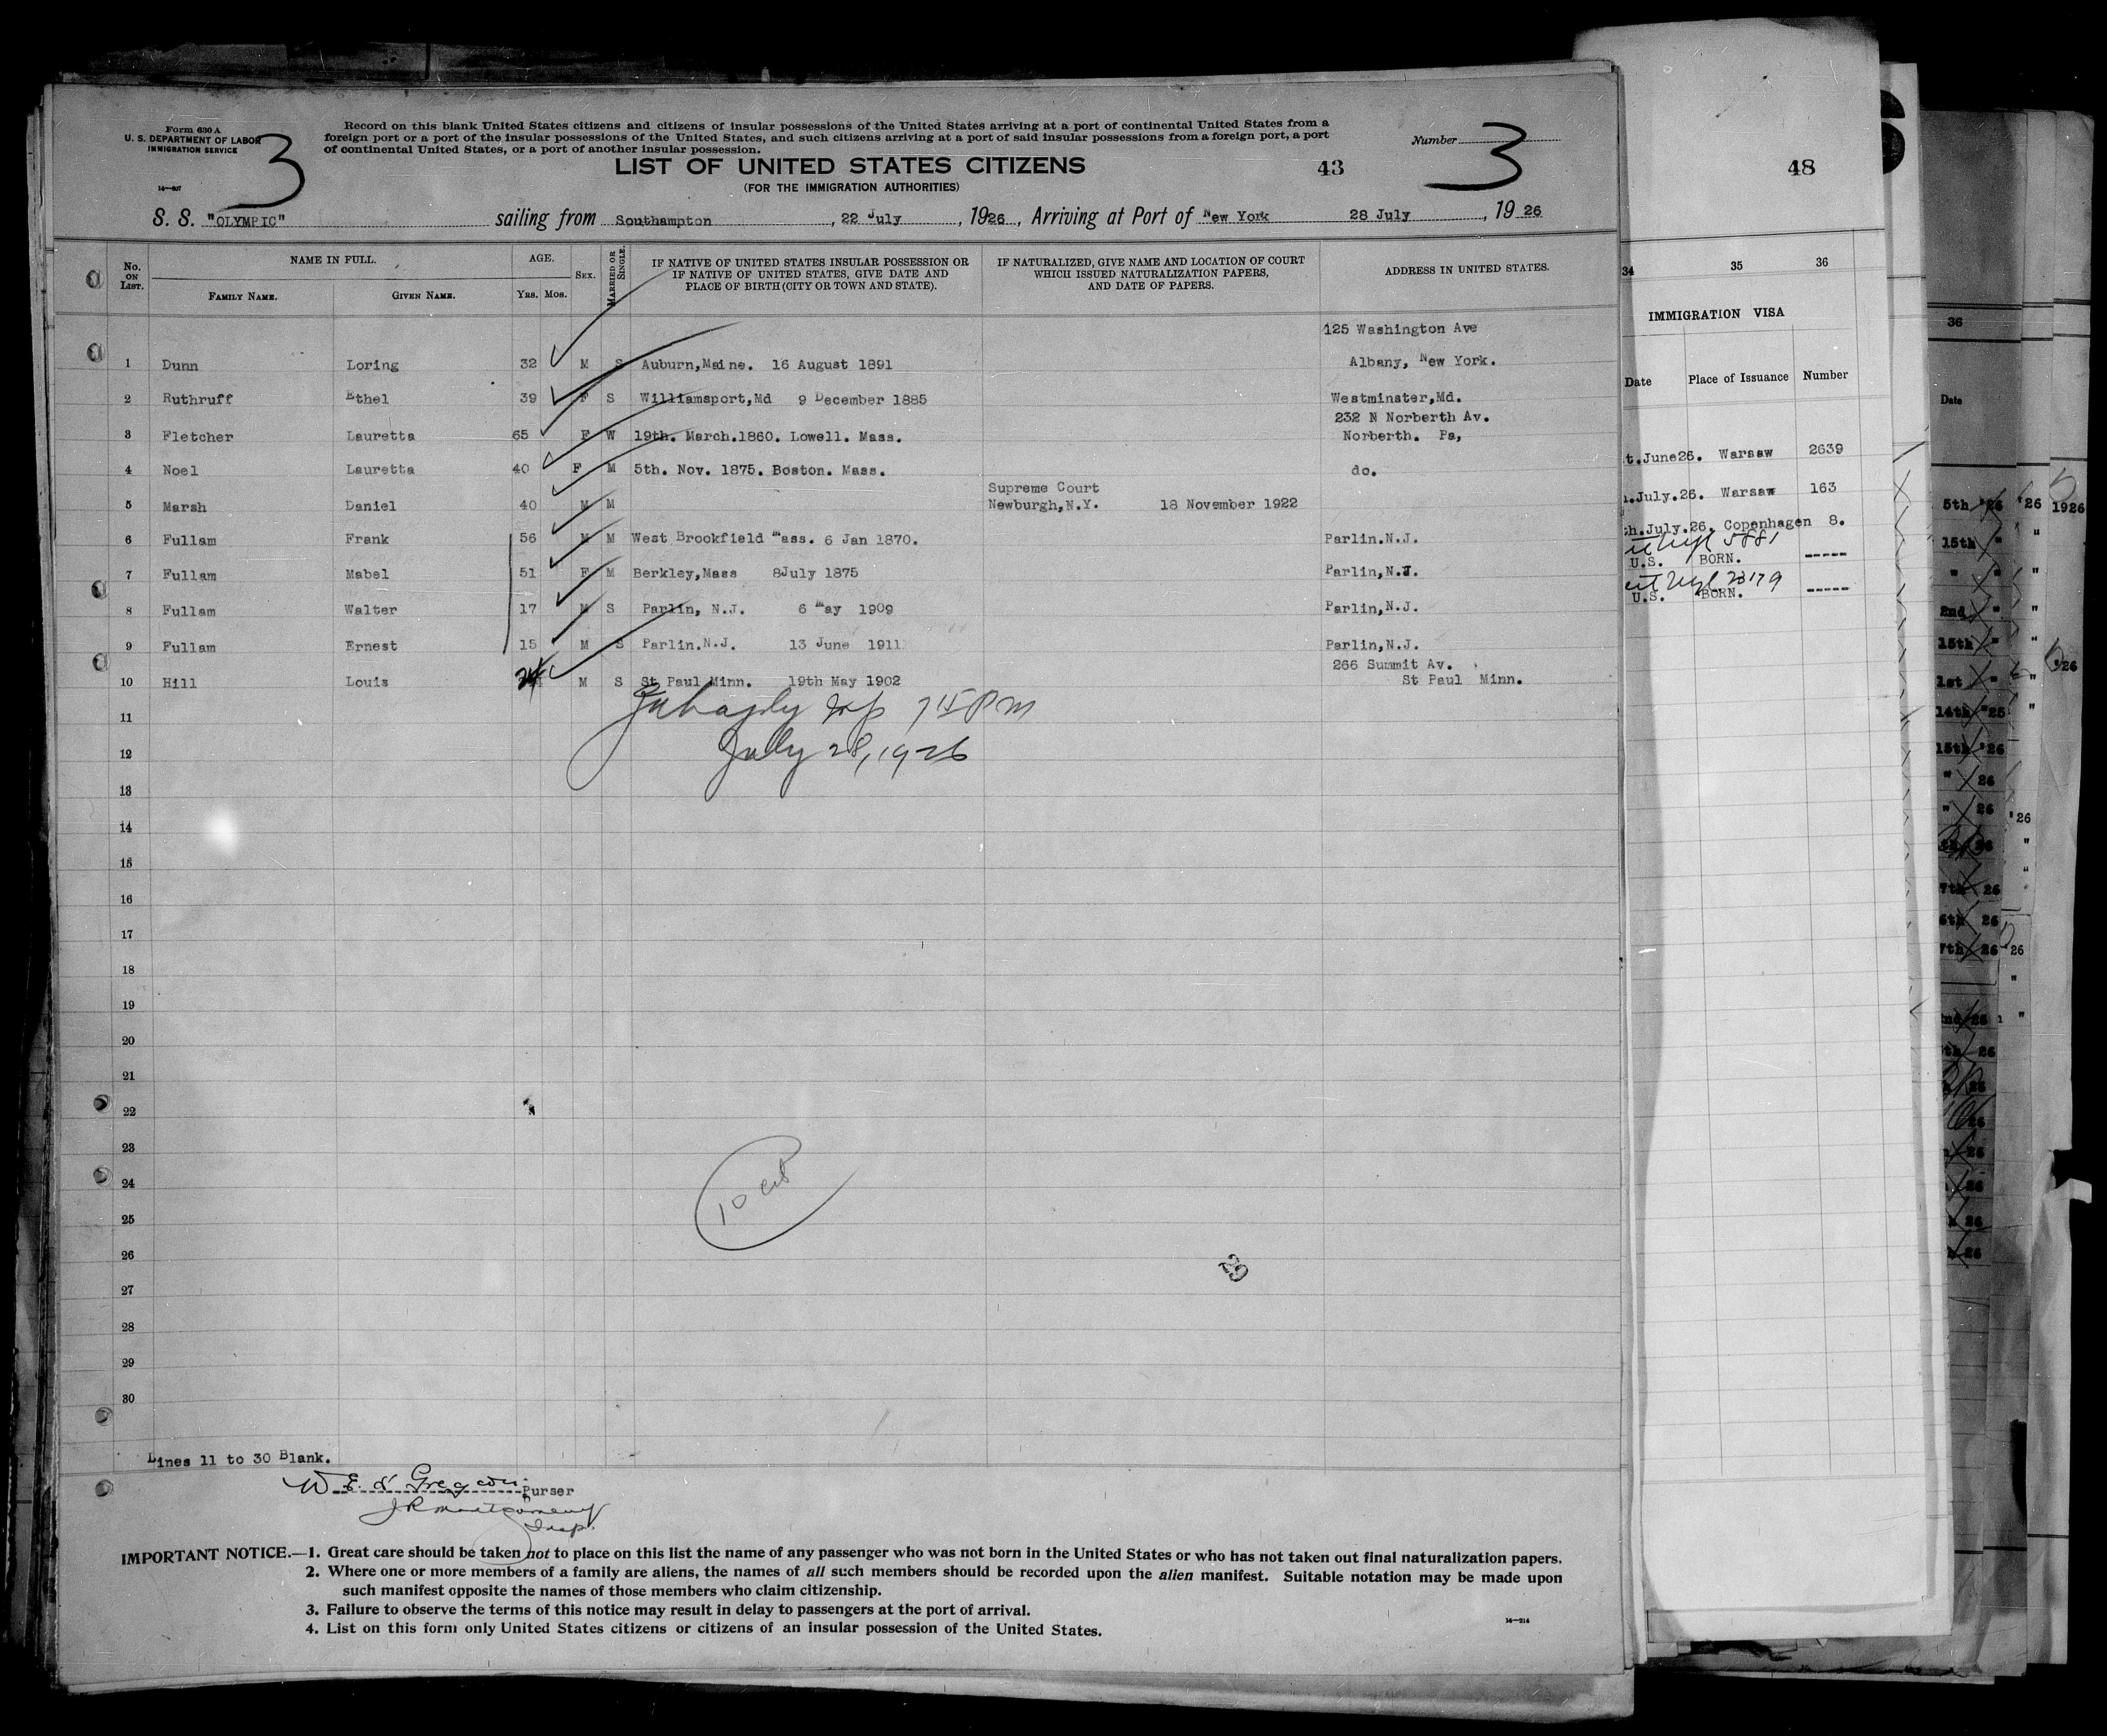 Form 630 A
U. S. DEPARTMENT OF LABOR
IMMIGRATION SERVICE
14—607
3
Record on this blank United States citizens and citizens of insular possessions of the United States arriving at a port of continental United States from a
foreign port or a port of the insular possessions of the United States, and such citizens arriving at a port of said insular possessions from a foreign port, a port
of continental United States, or a port of another insular possession.
LIST OF UNITED STATES CITIZENS
(FOR THE IMMIGRATION AUTHORITIES)
43
Number 3
S. S. "OLYMPIC" sailing from Southampton, 22 July, 1926, Arriving at Port of New York 28 July, 1926
No. ON LIST. NAME IN FULL. AGE. SEX. MARRIED OR SINGLE. IF NATIVE OF UNITED STATES INSULAR POSSESSION OR IF NATIVE OF UNITED STATES, GIVE DATE AND PLACE OF BIRTH (CITY OR TOWN AND STATE). IF NATURALIZED, GIVE NAME AND LOCATION OF COURT WHICH ISSUED NATURALIZATION PAPERS, AND DATE OF PAPERS. ADDRESS IN UNITED STATES.
FAMILY NAME. GIVEN NAME. YRS. MOS.
125 Washington Ave
1 Dunn Loring 32 M S Auburn,Maine. 16 August 1891 Albany, New York.
2 Ruthruff Ethel 39 F S Williamsport,Md 9 December 1885 Westminster,Md.
232 N Norberth Av.
3 Fletcher Lauretta 65 F W 19th. March.1860. Lowell. Mass. Norberth. Pa,
4 Noel Lauretta 40 F M 5th. Nov. 1875. Boston. Mass. do.
Supreme Court
5 Marsh Daniel 40 M M Newburgh,N.Y. 18 November 1922
6 Fullam Frank 56 M M West Brookfield Mass. 6 Jan 1870. Parlin.N.J.
7 Fullam Mabel 51 F M Berkley,Mass 8July 1875 Parlin,N.J.
8 Fullam Walter 17 M S Parlin, N.J. 6 May 1909 Parlin,N.J.
9 Fullam Ernest 15 M S Parlin.N.J. 13 June 1911 Parlin,N.J.
266 Summit Av.
10 Hill Louis 24 M S St Paul Minn. 19th May 1902 St Paul Minn.
11
July 28, 1926
12
13
14
15
16
17
18
19
20
21
22
23
24
10 cit
25
26
29
27
28
29
30
Lines 11 to 30 Blank.
Purser
J R Montgomery
Insp.
IMPORTANT NOTICE.—1. Great care should be taken not to place on this list the name of any passenger who was not born in the United States or who has not taken out final naturalization papers.
2. Where one or more members of a family are aliens, the names of all such members should be recorded upon the alien manifest. Suitable notation may be made upon
such manifest opposite the names of those members who claim citizenship.
3. Failure to observe the terms of this notice may result in delay to passengers at the port of arrival.
4. List on this form only United States citizens or citizens of an insular possession of the United States.
14—214
48
34 35 36
IMMIGRATION VISA
Date Place of Issuance Number
t.June26. Warsaw 2639
.July.26. Warsaw 163
h.July.26. Copenhagen 8.
5881
U.S. BORN. -----
23179
U.S. BORN. -----
36
Date
5th '26 '26 1926
15th " "
" " "
2nd " "
15th " "
'26
1st " "
14th '25 "
15th '26
" 26
" 26 '26
26 "
7th 26
6th 26
7th 26 26
"
26 "
26
26
26
26
26
26
26